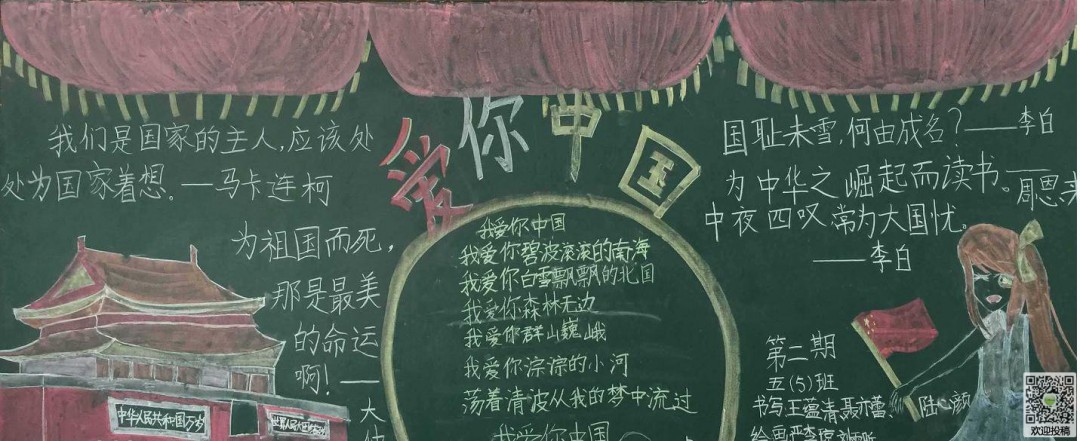 爱你中国
我们是国家的主人,应该处
处为国家着想。—马卡连柯
为祖国而死,
那是最美
的命运
啊!—
大
中华人民共和国万岁
我爱你中国
我爱你碧波滚滚的南海
我爱你白雪飘飘的北国
我爱你森林无边
我爱你群山巍峨
我爱你淙淙的小河
荡着清波从我的梦中流过
我爱你中国
国耻未雪,何由成名?——李白
为中华之崛起而读书。——周恩来
中夜四叹,常为大国忧。
——李白
第二期
五(5)班
书写:王蕴清
陆心颜
欢迎投稿